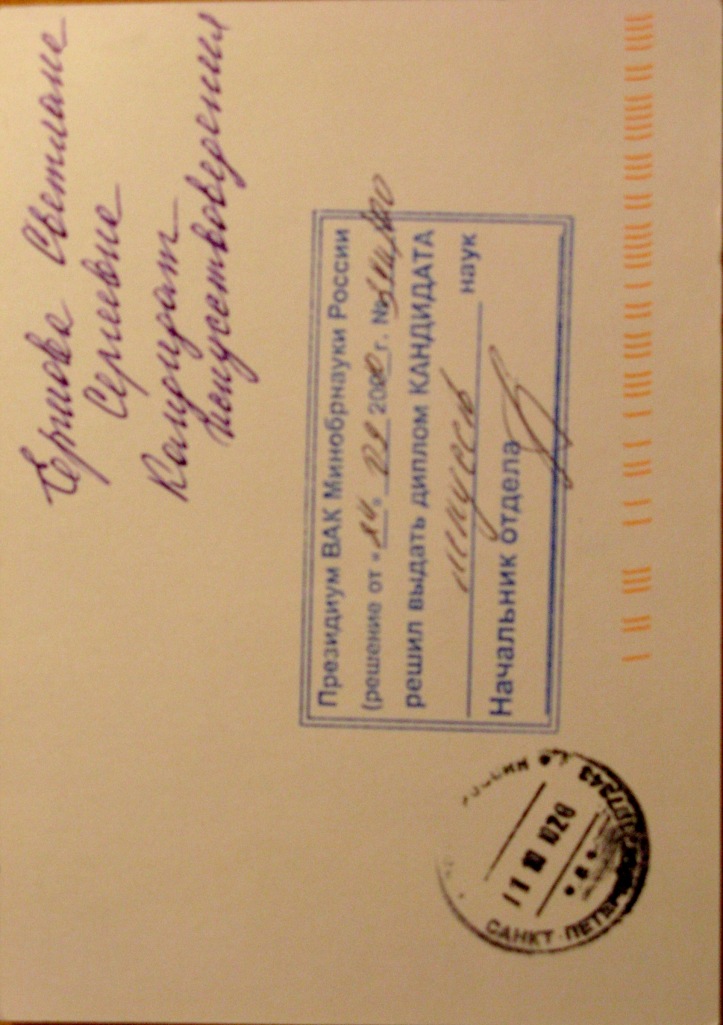 Ершова Светлане
Сергеевне
Кандидат
искусствоведения
Президиум ВАК Минобрнауки России
(решение от " " 200 г. №
решил выдать диплом КАНДИДАТА
искусств наук
Начальник отдела
РОССИИ
САНКТ-ПЕТЕРБУРГ